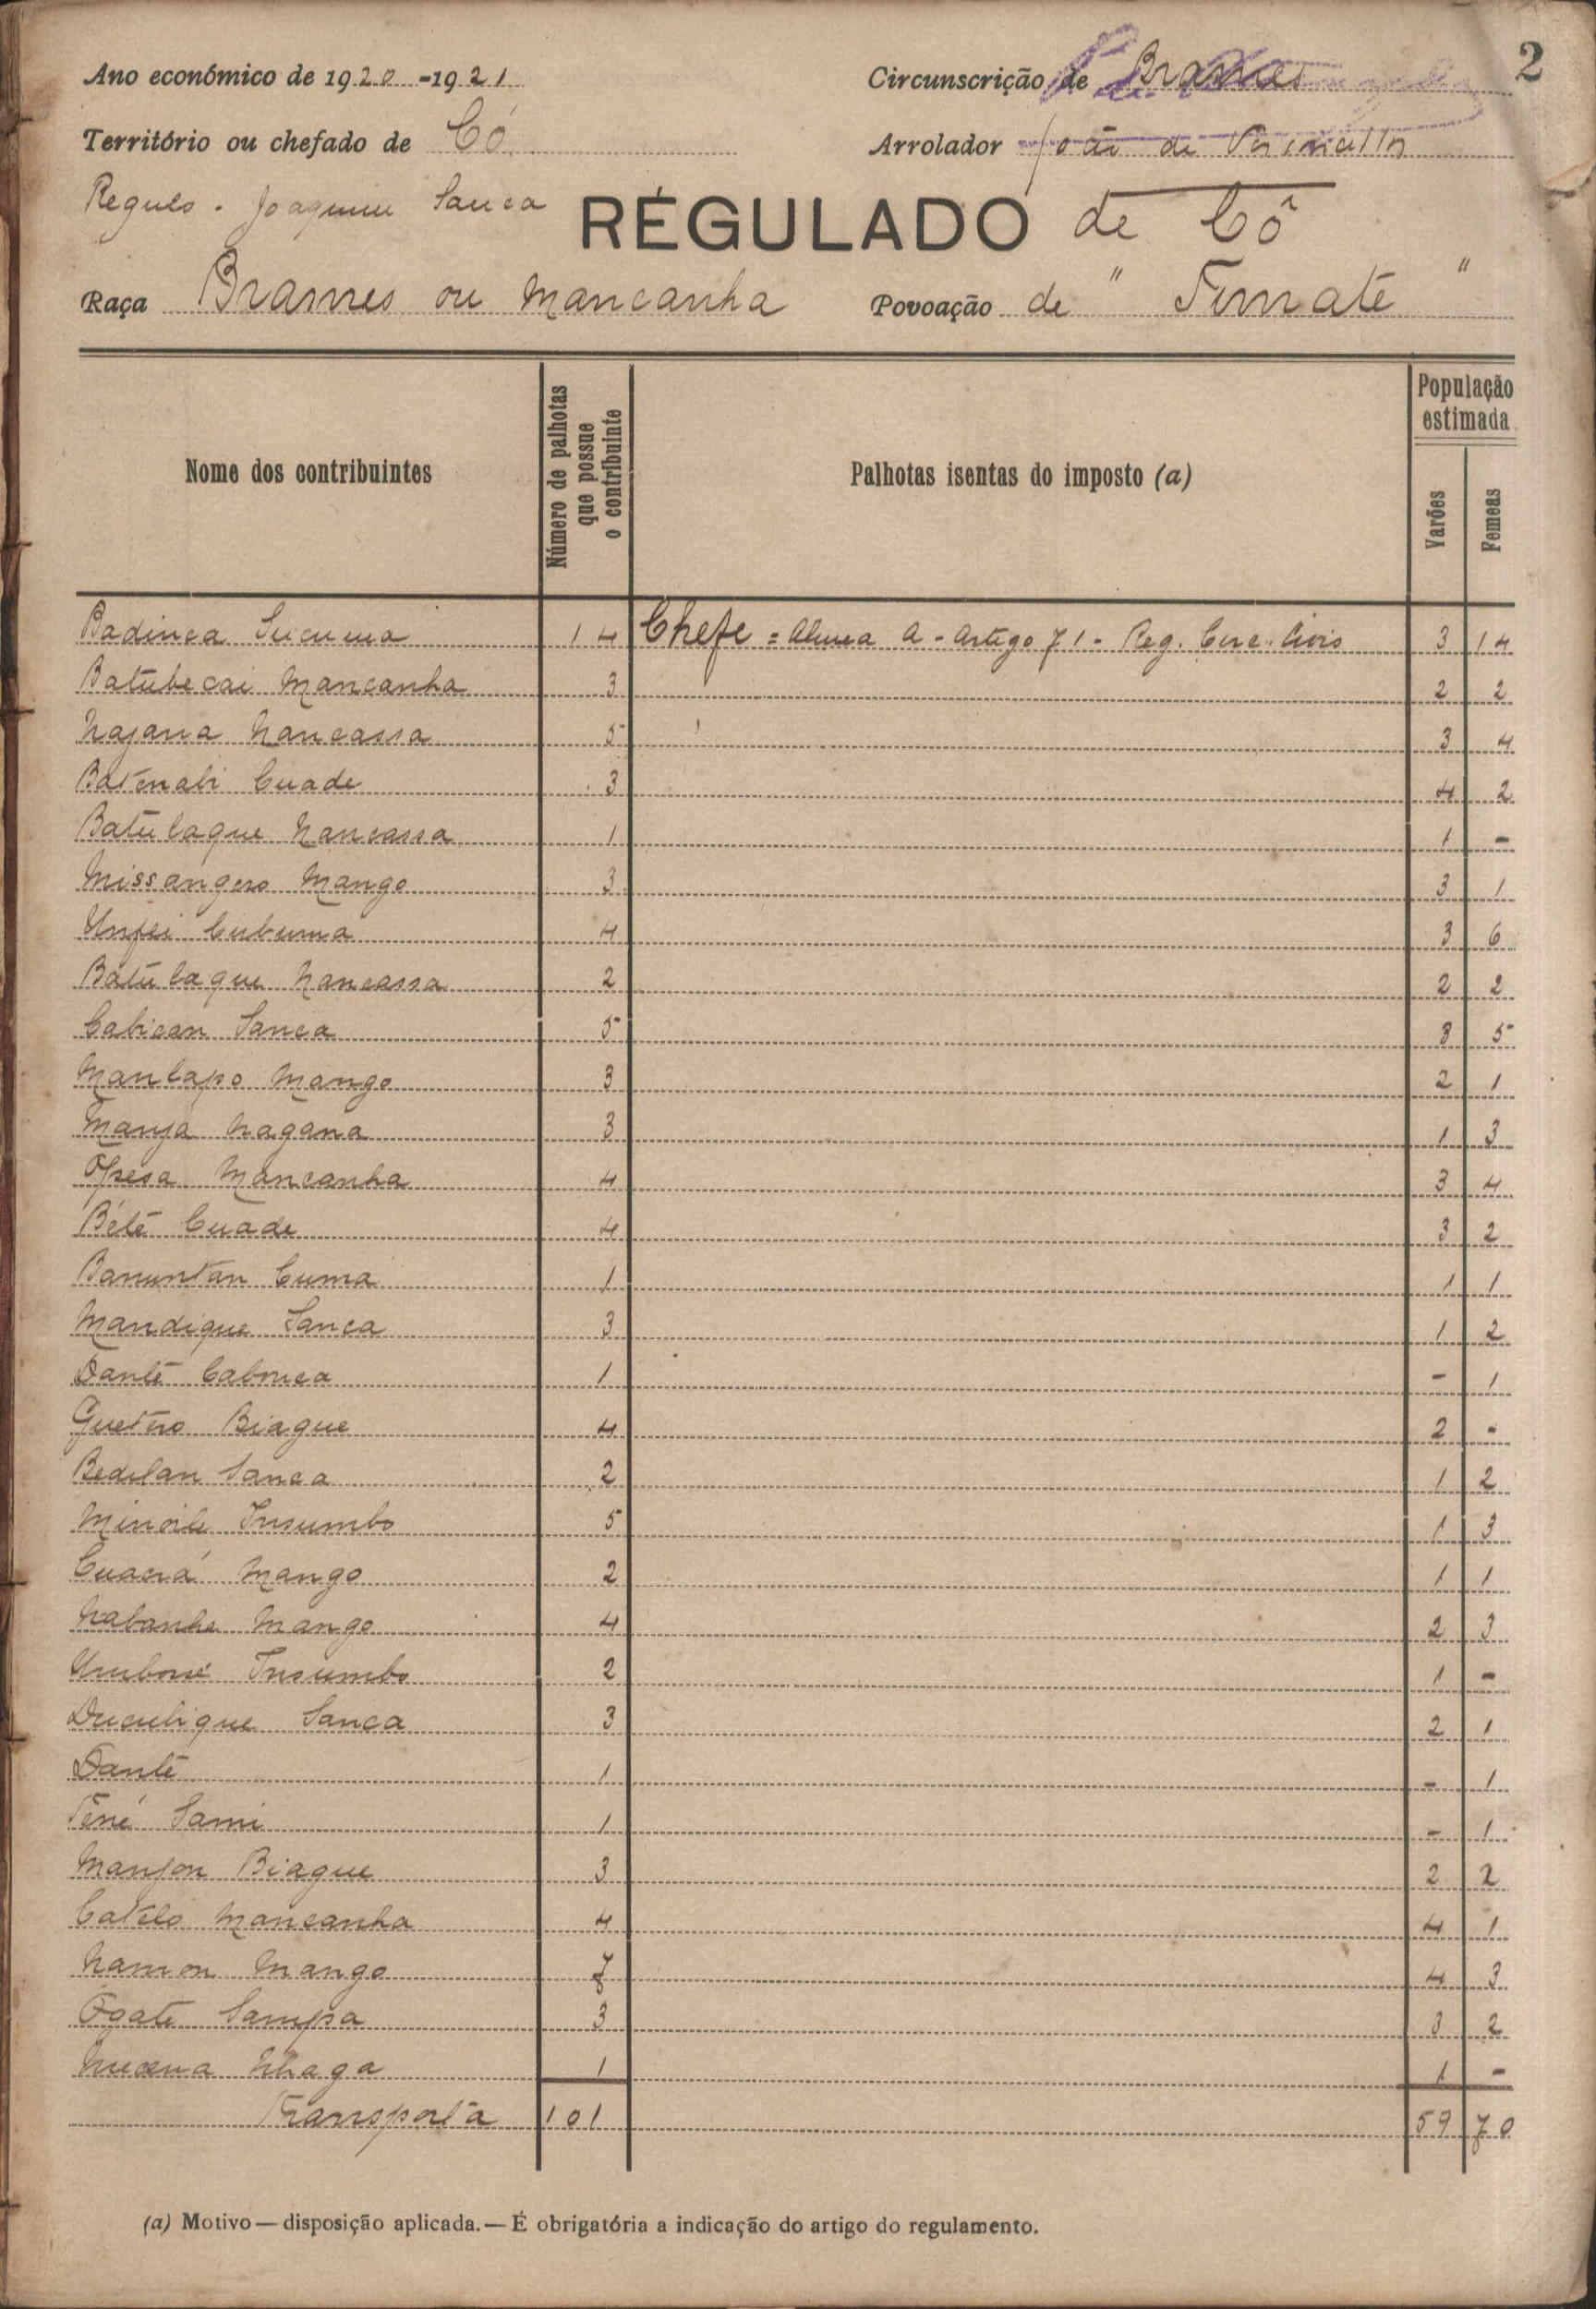 2
Ano económico de 1920-1921
Circunscrição de Brames
Território ou chefado de Có
Arrolador João de
Regulo. Joaquim Sanca
RÉGULADO de Cô
Raça Brames ou Mancanha
Povoação de "
Nome dos contribuintes
Número de palhotas que possue o contribuinte
Palhotas isentas do imposto (a)
População estimada
Varões
Femeas
Badinca 14 Chefe = Alinea A - Artigo 71 - Reg. Circ. Civis 3 14
Batubecai Mancanha 3 2 2
Najana Nancassa 5 3 4
Batenabi Cuade 3 4 2
Batulaque Nancassa 1 1 -
Missangero Mango 3 3 1
Cubuma 4 3 6
Batulaque Nancassa 2 2 2
Cabican Sanca 5 3 5
Manlapo Mango 3 2 1
Manja Nagana 3 1 3
Opesa Mancanha 4 3 4
Bété Cuade 4 3 2
Banuntan Cuma 1 1 1
Mandique Sanca 3 1 2
Danté 1 - 1
Guetero Biague 4 2 -
Bedelan Sanca 2 1 2
Insumbo 5 1 3
Mango 2 1 1
Nabanha Mango 4 2 3
Insumbo 2 1 -
Duculique Sanca 3 2 1
Danté 1 - 1
Tené Sami 1 - 1
Manjon Biague 3 2 2
Catelo Mancanha 4 4 1
Namon Mango 7 4 3
Ogate Sampa 3 3 2
Nhaga 1 1 -
Transporta 101 59 70
(a) Motivo — disposição aplicada. — É obrigatória a indicação do artigo do regulamento.